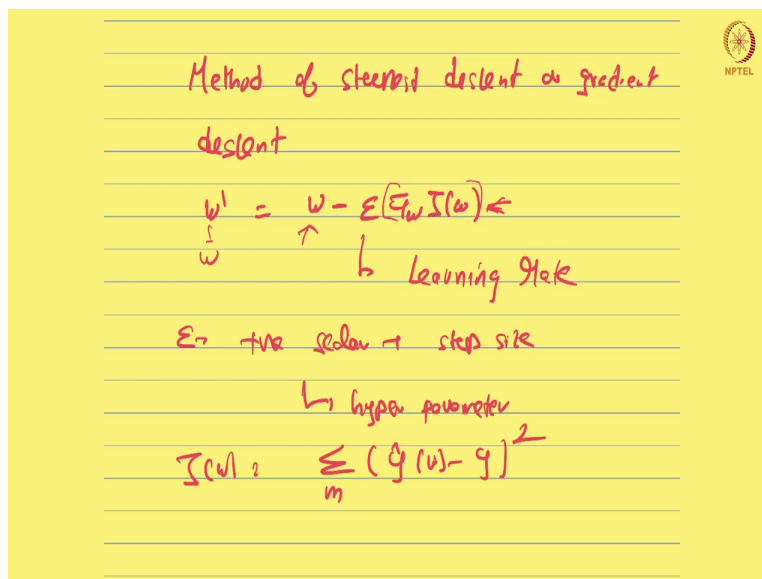 Method of steepest descent or gradient
NPTEL
descent
w' = w - ε[∇w J(w)] ←
↑
w
↳ Learning Rate
ε → +ve scalar → step size
↳ hyper parameter
J(w) = Σ (ŷ(w) - y)²
m